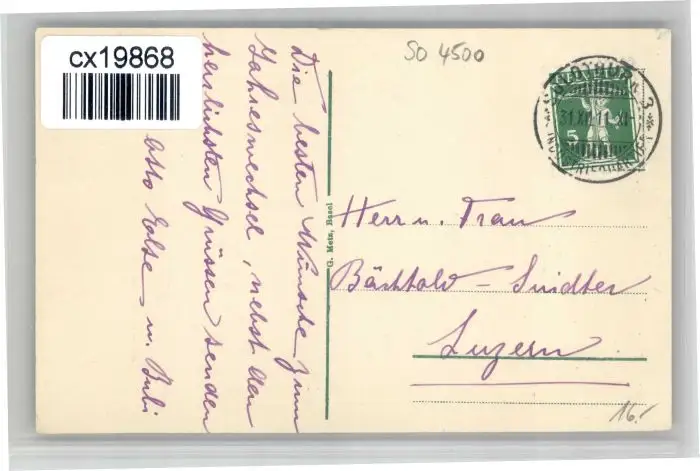 cx19868
SO 4500
31.XII.11.XI-
5
Die besten Wünsche zum
Jahreswechsel, nebst den
herzlichsten Grüssen senden
Otto
u.
G. Metz, Basel
Herrn u. Frau
Bächtold - 
Luzern
16.-